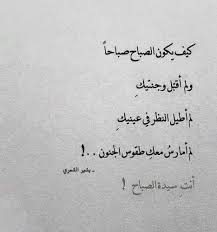 كيف يكون الصباح صباحاً
ولم أقبّل وجنتيكِ
لم أطيل النظر في عينيكِ
لم أمارسُ معكِ طقوس الجنون ..!
ـ بشير الشعري
أنتِ سيدة الصباح !